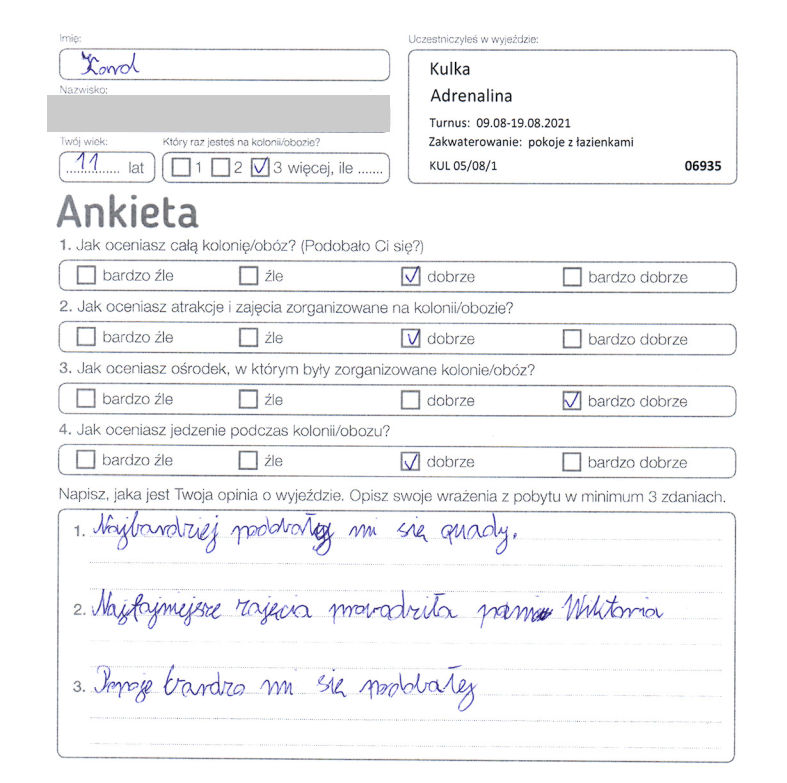 Imię:
Karol
Uczestniczyłeś w wyjeździe:
Kulka
Adrenalina
Turnus: 09.08-19.08.2021
Zakwaterowanie: pokoje z łazienkami
KUL 05/08/1 06935
Nazwisko:
Twój wiek:
11 lat
Który raz jesteś na kolonii/obozie?
1 2 3 więcej, ile .......
Ankieta
1. Jak oceniasz całą kolonię/obóz? (Podobało Ci się?)
bardzo źle źle dobrze bardzo dobrze
2. Jak oceniasz atrakcje i zajęcia zorganizowane na kolonii/obozie?
bardzo źle źle dobrze bardzo dobrze
3. Jak oceniasz ośrodek, w którym były zorganizowane kolonie/obóz?
bardzo źle źle dobrze bardzo dobrze
4. Jak oceniasz jedzenie podczas kolonii/obozu?
bardzo źle źle dobrze bardzo dobrze
Napisz, jaka jest Twoja opinia o wyjeździe. Opisz swoje wrażenia z pobytu w minimum 3 zdaniach.
1. Najbardziej podobały mi się quady.
2. Najfajmiejsze zajęcia prowadziła pani Wiktoria
3. bardzo mi się